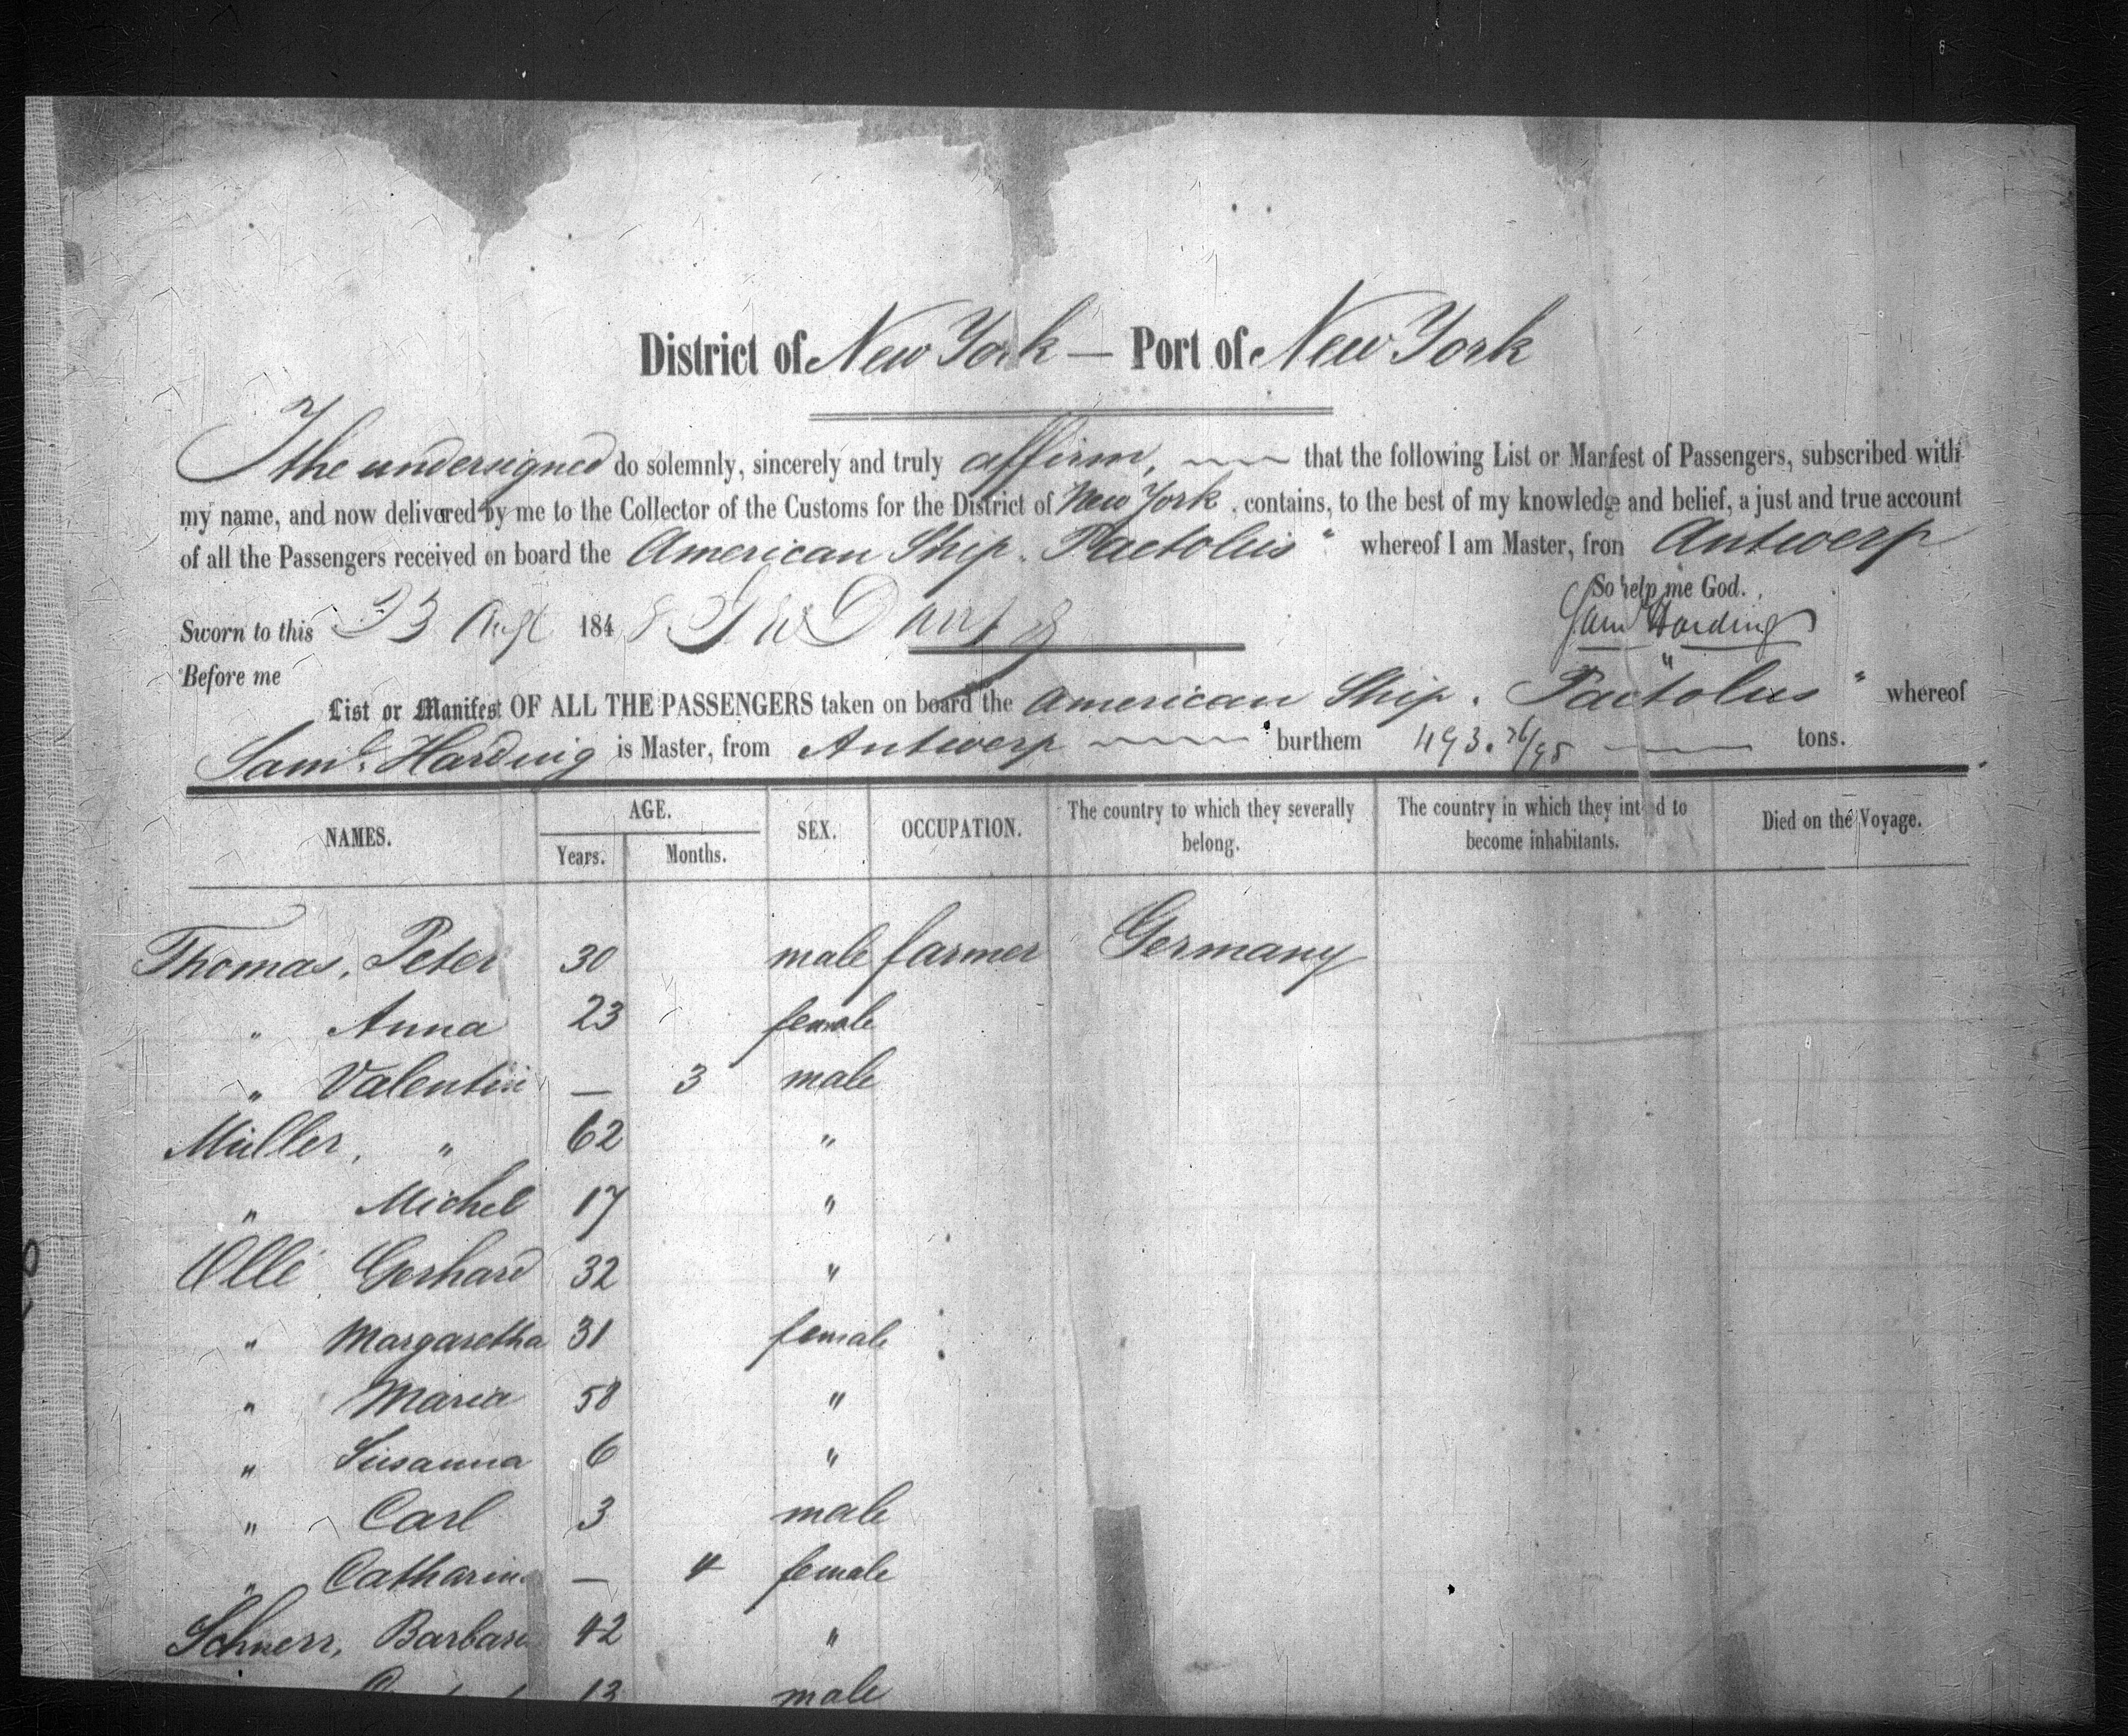 District of New York — Port of New York
I the undersigned do solemnly, sincerely and truly affirm, that the following List or Manifest of Passengers, subscribed with
my name, and now delivered by me to the Collector of the Customs for the District of New York, contains, to the best of my knowledge and belief, a just and true account
of all the Passengers received on board the American Ship "Pactolus" whereof I am Master, from Antwerp
So help me God.
Sworn to this 23 Augt 1848
Saml Harding
Before me
List or Manifest OF ALL THE PASSENGERS taken on board the American Ship "Pactolus" whereof
Saml. Harding is Master, from Antwerp burthem 493. 76/95 tons.
NAMES. AGE. Years. Months. SEX. OCCUPATION. The country to which they severally belong. The country in which they intend to become inhabitants. Died on the Voyage.
Thomas, Peter 30 male farmer Germany
" Anna 23 female
" Valentin — 3 male
Müller, " 62 "
" Michel 17 "
Ollé Gerhard 32 "
" Margaretha 31 female
" Maria 58 "
" Susanna 6 "
" Carl 3 male
" Catharina — 4 female
Schnerr, Barbara 42 "
13 male